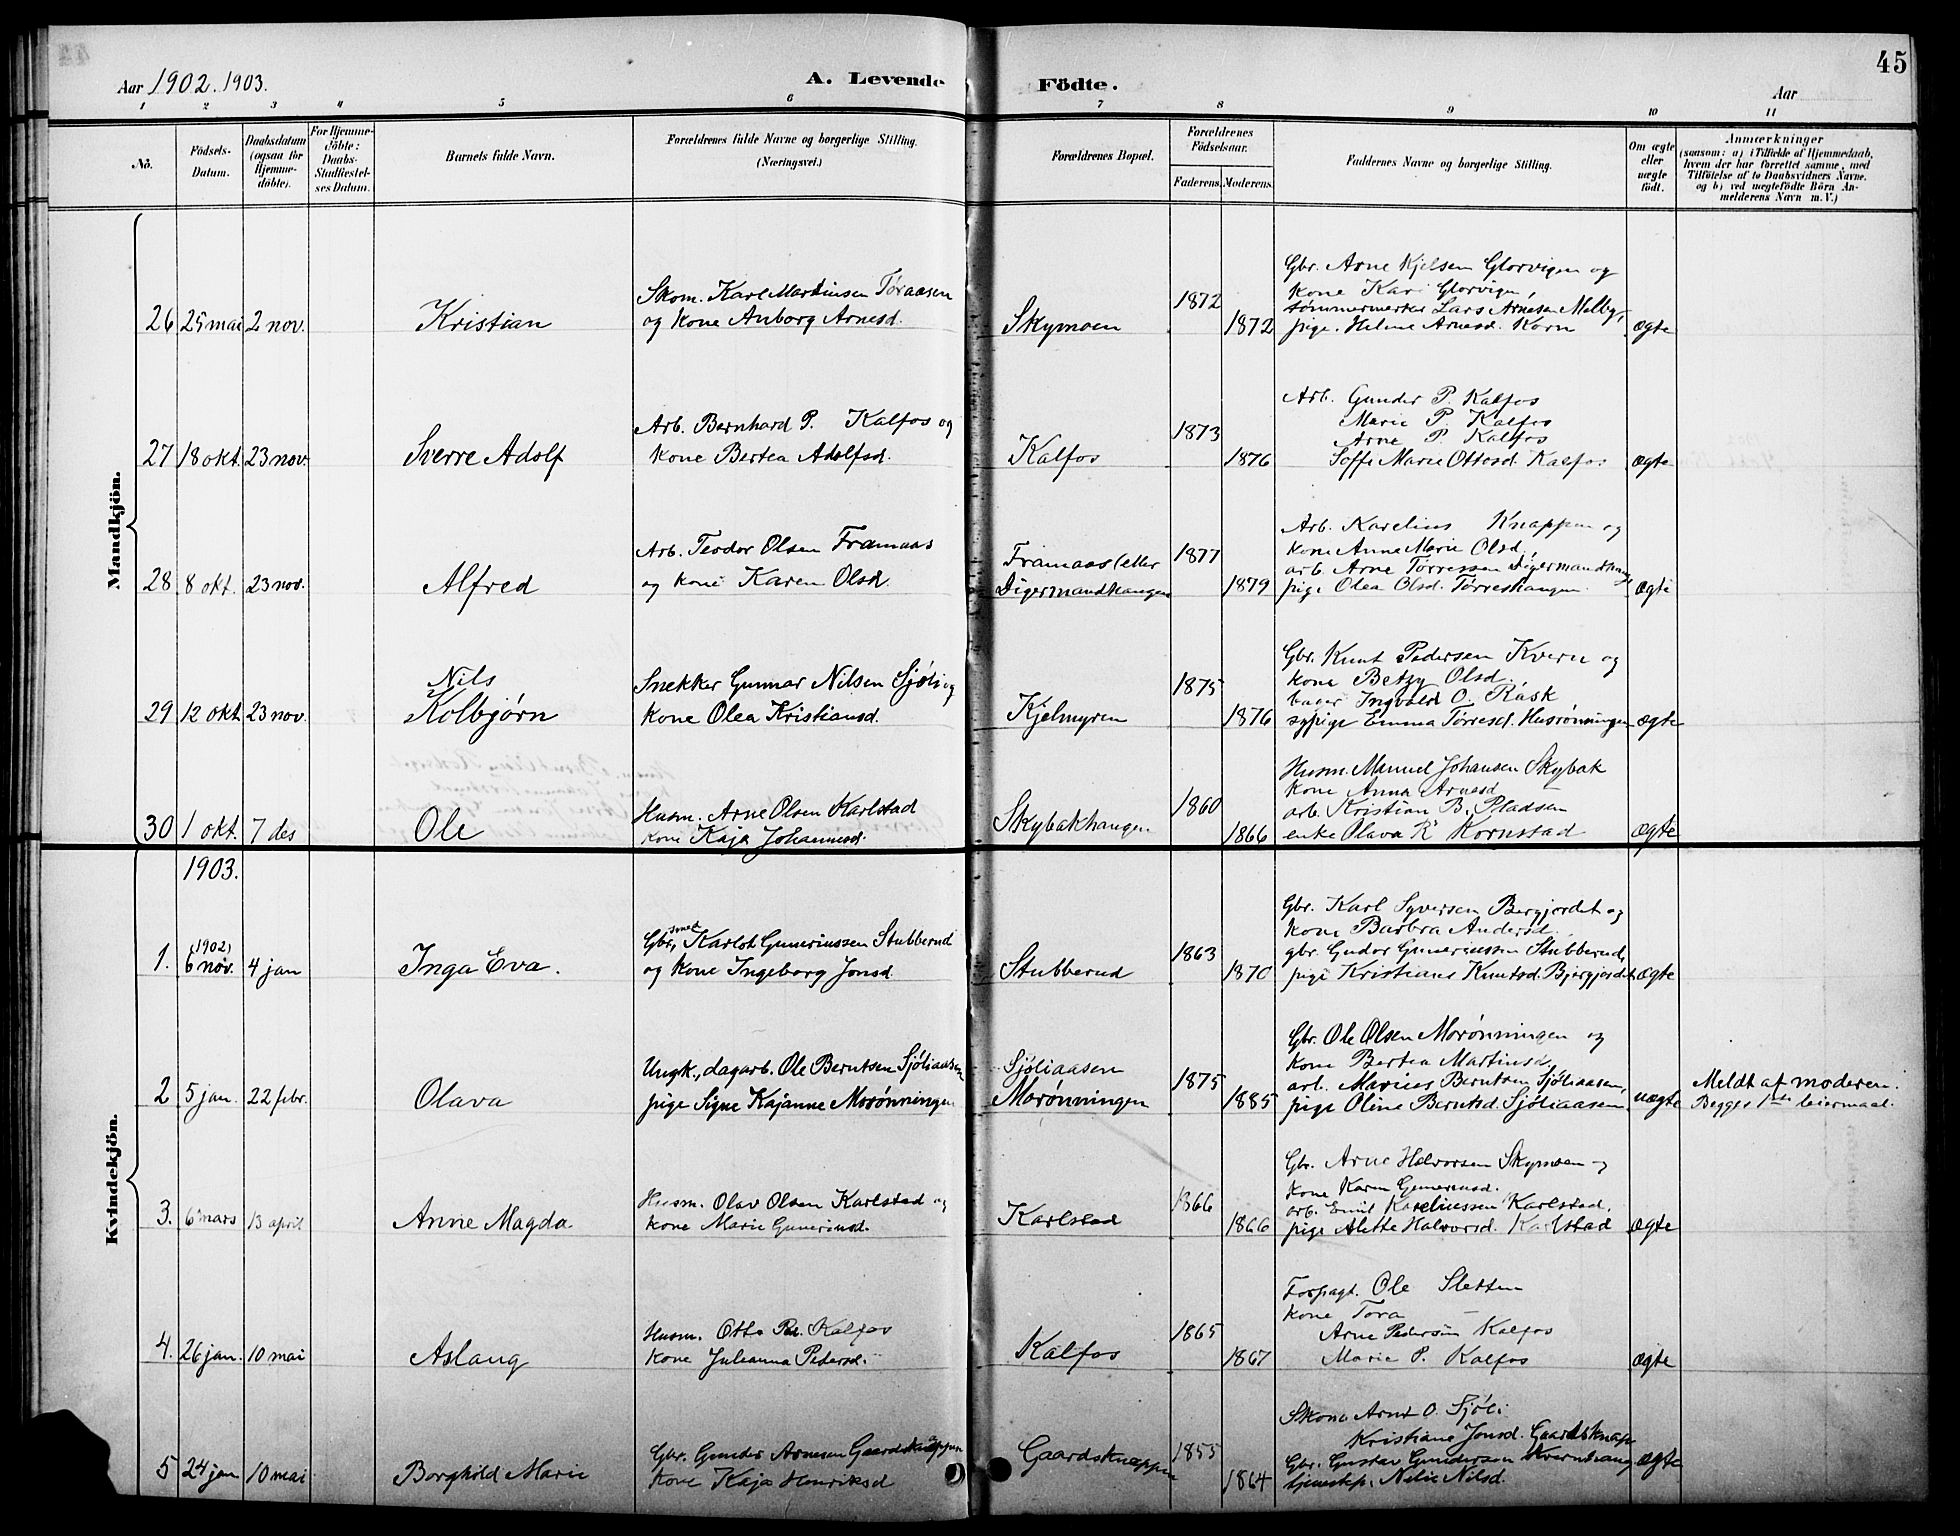 Aar 1902. 1903.
A. Levende Födte.
Aar
45
1 2 3 4 5 6 7 8 9 10 11
No.
Födsels-Datum.
Daabsdatum (ogsaa for Hjemme-döbte).
For Hjemme-döbte: Daabs-Stadfæstel-ses Datum.
Barnets fulde Navn.
Forældrenes fulde Navne og borgerlige Stilling. (Næringsvei.)
Forældrenes Bopæl.
Forældrenes Födselsaar.
Faderens. Moderens.
Faddernes Navne og borgerlige Stilling.
Om ægte eller uægte födt.
Anmærkninger
(saasom: a) i Tilfælde af Hjemmedaab,
hvem der har forrettet samme, med
Tilföielse af to Daabsvidners Navne,
og b) ved uægtefödte Börn An-
melderens Navn m. V.)
Mandkjön.
26 25 mai 2 nov.
Kristian
Skom. Karl Martinsen Tøraasen
og kone Anborg Arnesd.
Skymoen
1872
1872
Gbr. Arne Kjelsen Glorvigen og
kone Kari Glorvigen,
tømmermerker Lars Arnesen Melby,
pige Helene Arnesd. Korn
ægte
27 18 okt. 23 nov.
Sverre Adolf
Arb. Bernhard P. Kalfos og
kone Bertea Adolfsd.
Kalfos
1873
1876
Arb. Gunder P. Kalfos
Marie P. Kalfos
Arne P. Kalfos
Soffi Marie Ottesd. Kalfos
ægte
28 8 okt. 23 nov.
Alfred
Arb. Teodor Olsen Framaas
og kone Karen Olsd.
Framaas (eller
Digermandhangen
1877
1879
Arb. Karelius Knappen og
kone Anne Marie Olsd.
arb. Arne Tørressen Digermandhang
pige Olea Olsd. Tørreshangen.
ægte
29 12 okt 23 nov.
Nils
Kolbjørn
Snekker Gunnar Nilsen Sjøli og
kone Olea Kristiansd.
Kjelmyren
1875
1876
Gbr. Knut Pedersen Kvern og
kone Betzy Olsd.
bager Ingvald O. Rask
sypige Emma Tørresd. Husrønningen
ægte
30 1 okt. 7 des
Ole
Husm. Arne Olsen Karlstad
kone Kaja Johannesd.
Skybakhangen
1860
1866
Husm. Manuel Johansen Skybak
kone Anna Arnesd
arb. Kristian B. Pladsen
enke Olava K. Kornstad
ægte
Kvindekjön.
1903.
1. (1902) 6 nov. 4 jan
Inga Eva.
Gbr., smed Karlot Guneriussen Stubberud
og kone Ingeborg Jonsd.
Stubberud
1863
1870
Gbr. Karl Syversen Bergjordet og
kone Barbra Andersd.
gbr. Gudor Gunerinssen Stubberud,
pige Kristiane Knutsd. Bjergjordet
ægte
2 5 jan. 22 febr.
Olava
Ungk., dagarb. Ole Berntsen Sjøliaasen
pige Signe Kajanne Morønningen
Sjøliaasen
Morønningen
1875
1885
Gbr. Ole Olsen Morønningen og
kone Bertea Martinsd.,
arb. Marius Berntsen Sjøliaasen,
pige Oline Berntsd. Sjøliaasen.
uægte
Meldt af moderen.
Begges 1ste leiermaal.
3. 6 mars 13 april
Anne Magda
Husm. Olav Olsen Karlstad og
kone Marie Gunerinsd.
Karlstad
1866
1866
Gbr. Arne Halvorsen Skymoen og
kone Karen Gunerinsd.
arb. Emil Kareliussen Karlstad,
pige Alette Halvorsd. Karlstad
ægte
4. 26 jan. 10 mai
Aslaug
Husm. Otto Pe. Kalfos
kone Julianna Pedersd.
Kalfos
1865
1867
Forpagt. Ole Sletten
kone Tora —
Arne Pedersen Kalfos
Marie P. Kalfos
ægte
5 24 jan 10 mai
Borghild Marie
Gbr. Gunder Arnesen Gaardsknappen
kone Kaja Henriksd
Gaardsknappen
1855
1864
Skom. Arne O. Sjøli
Kristiane Jonsd. Gaardsknap
Gbr. Gustav Gundersen Kvernhang
tjenestep. Nelie Nilsd.
ægte